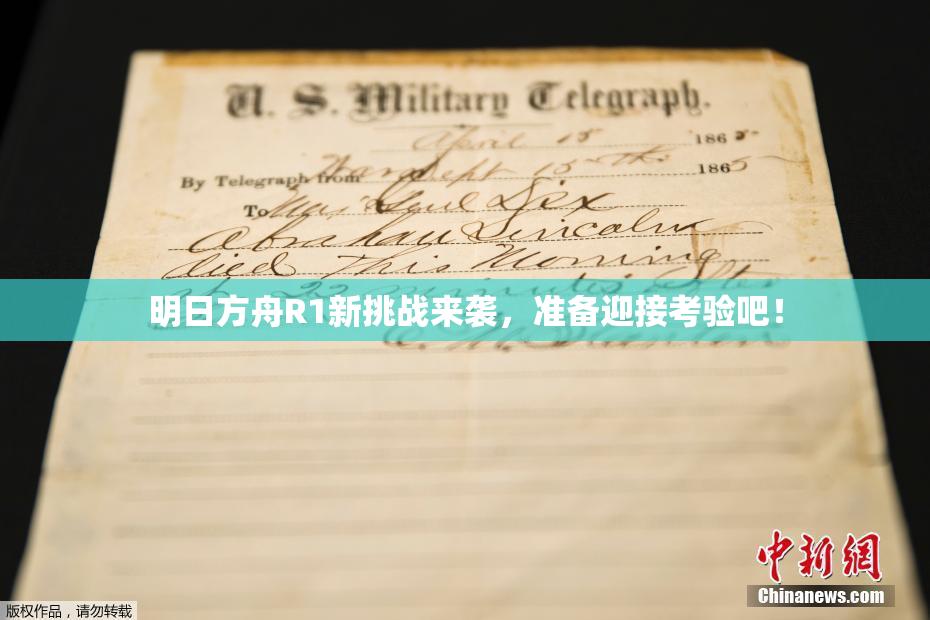 U. S. Military Telegraph.
April 15 1865
By Telegraph from War Dept 15th 1865
To Maj Genl Dix
Abraham Lincoln
died This Morning
at 22 minutes after
明日方舟R1新挑战来袭，准备迎接考验吧！
E. M. Stanton
中新网
Chinanews.com
版权作品，请勿转载